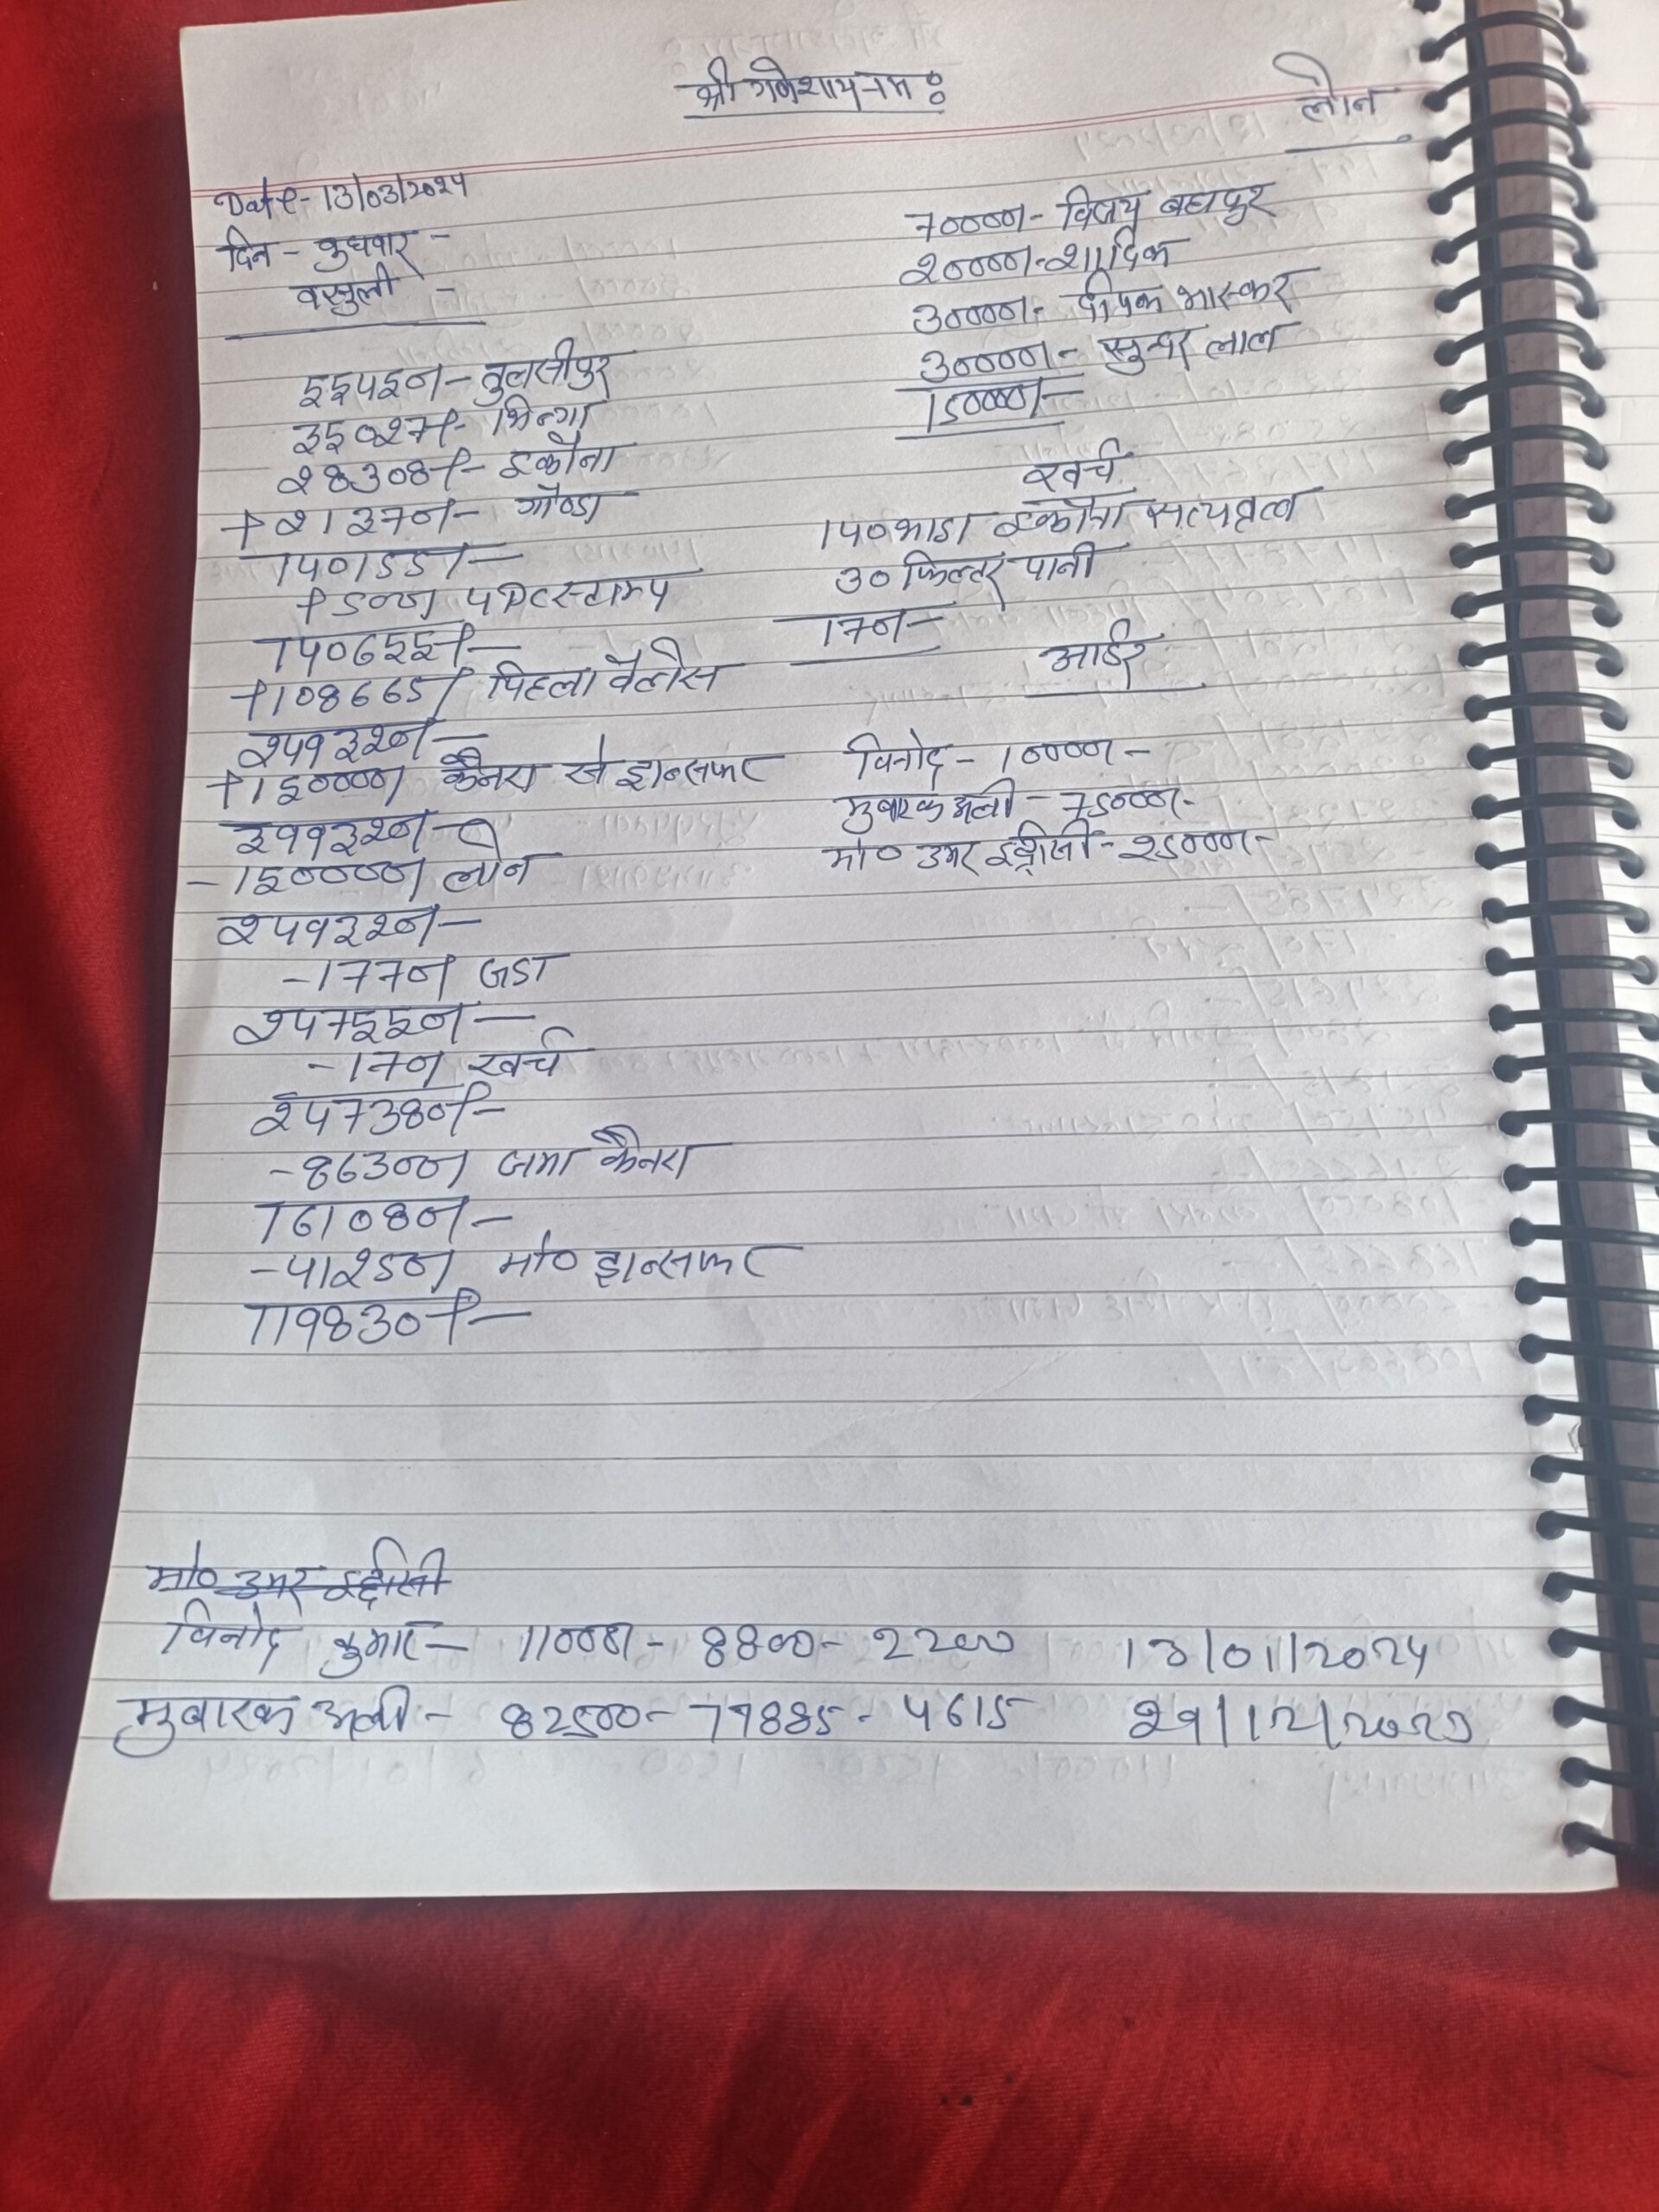 श्री गणेशाय नमः
लोन
Date- 13/03/2024
दिन - बुधवार -
वसुली -
55450/- तुलसीपुर
35027/- भिन्गा
28308/- इकौना
+21370/- गोण्डा
140155/-
+500/ PDC स्टाम्प
140655/-
+108665/ पिछला बैलेंस
249320/-
+150000/ कैनरा से ट्रान्सफर
399320/-
-150000/ लोन
249320/-
-1770/ GST
247550/-
-170/ खर्च
247380/-
-86300/ जमा कैनरा
161080/-
-41250/ मो० ट्रान्सफर
119830/-
70000/- विजय
20000/- शादिक
30000/- दीपक भास्कर
30000/- सुन्दर लाल
150000/-
खर्च
140 भाडा इकौना सत्यव्रत
30 फिल्टर पानी
170/-
आर्डर
विनोद - 10000/-
मुबारक अली - 75000/-
मो० उमर इद्रीसी - 25000/-
मो० उमर इद्रीसी
विनोद कुमार - 11000/- 8800- 2200 13/01/2024
मुबारक अली - 82500- 77885- 4615 29/12/2023